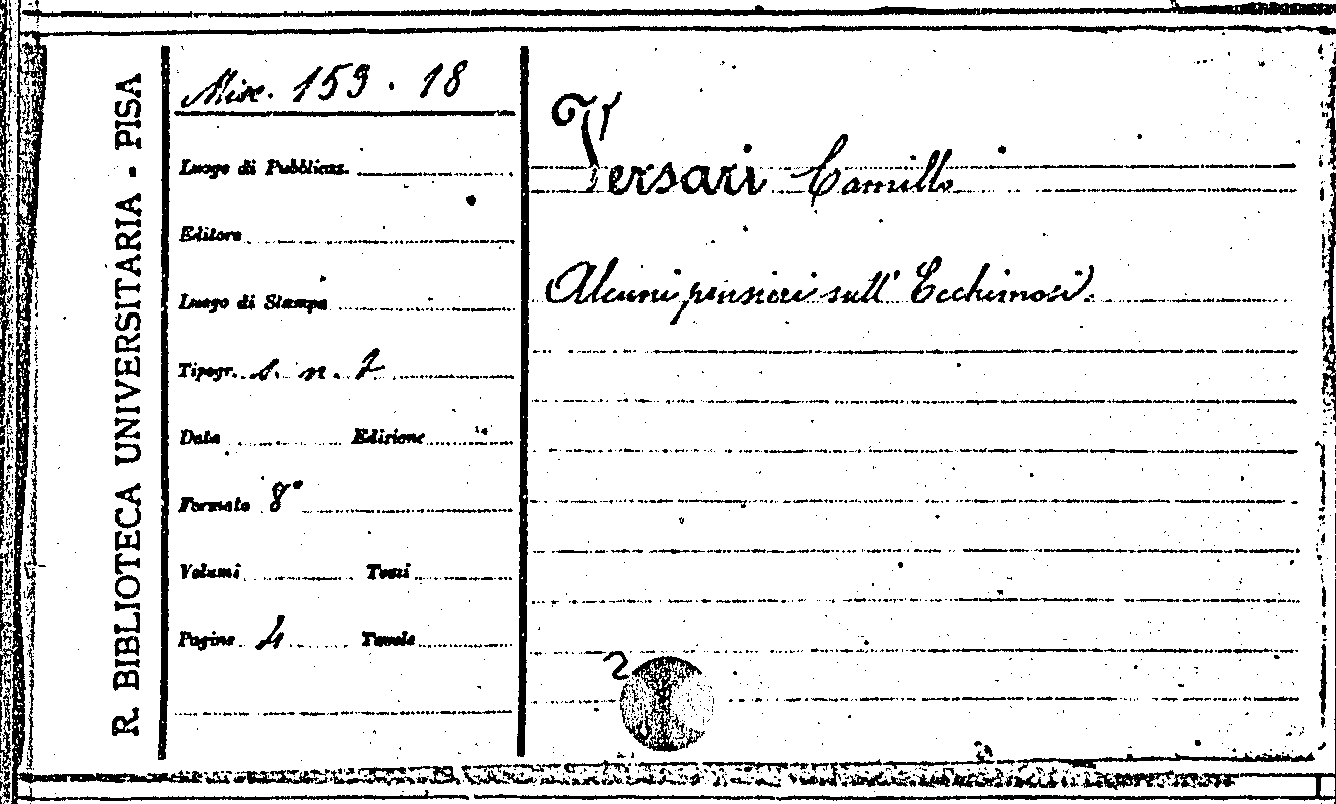 R. BIBLIOTECA UNIVERSITARIA - PISA
Misc. 159 . 18
Luogo di Pubblicaz.
Editore
Luogo di Stampa
Tipogr. s. n. t
Data Edizione
Formato 8°
Volumi Tomi
Pagine 4 Tavole
Versari Camillo
Alcuni pensieri sull' Ecchimosi.
2